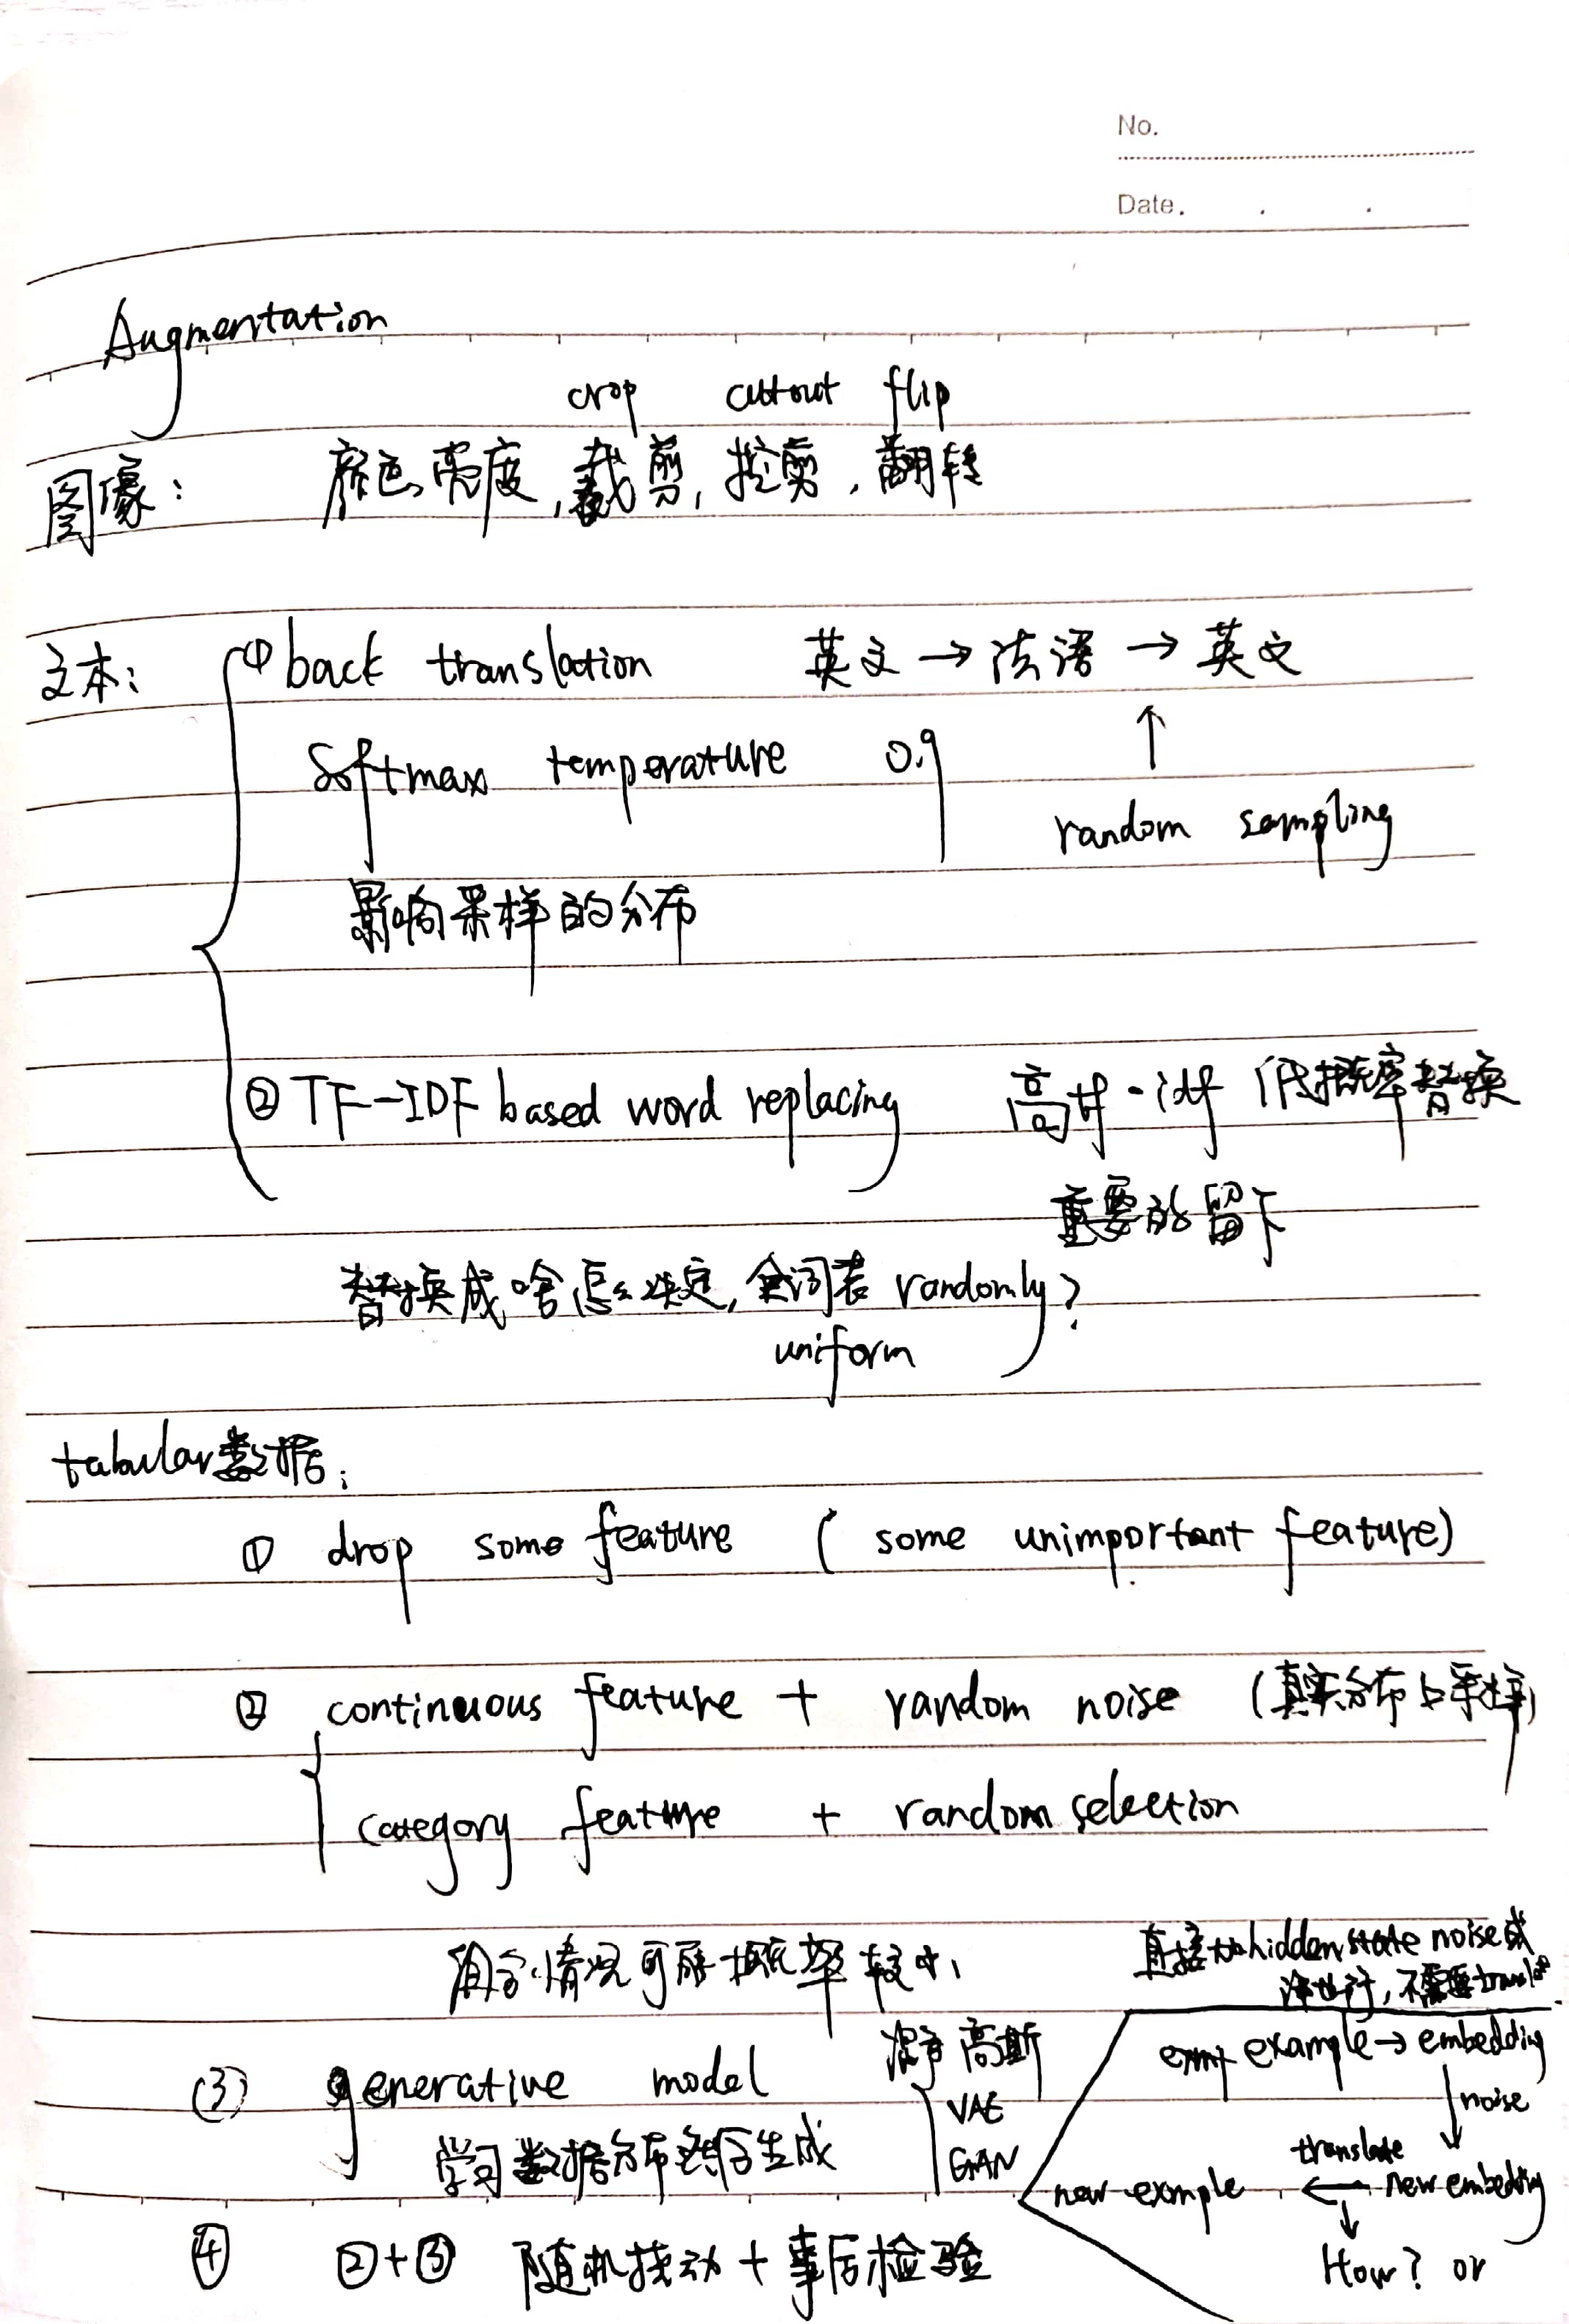 No.
Date.
Augmentation
crop cutout flip
图像： 颜色亮度，裁剪，挖剪，翻转
文本： ① back translation 英文 → 法语 → 英文
Softmax temperature 0.9 ↑
random sampling
影响采样的分布
② TF-IDF based word replacing 高tf-idf 低概率替换
重要的留下
替换成啥怎么决定，全词表 randomly？
uniform
tabular数据：
① drop some feature ( some unimportant feature)
② continuous feature + random noise (真实分布上采样)
category feature + random selection
情况可能概率较小
直接 hidden state noise 或
不需要
③ generative model 混合高斯
VAE
GAN
学习数据分布然后生成
example → embedding
↓ noise
translate
new example ← new embedding
↓
How? or
④ ②+③ 随机扰动 + 事后检验